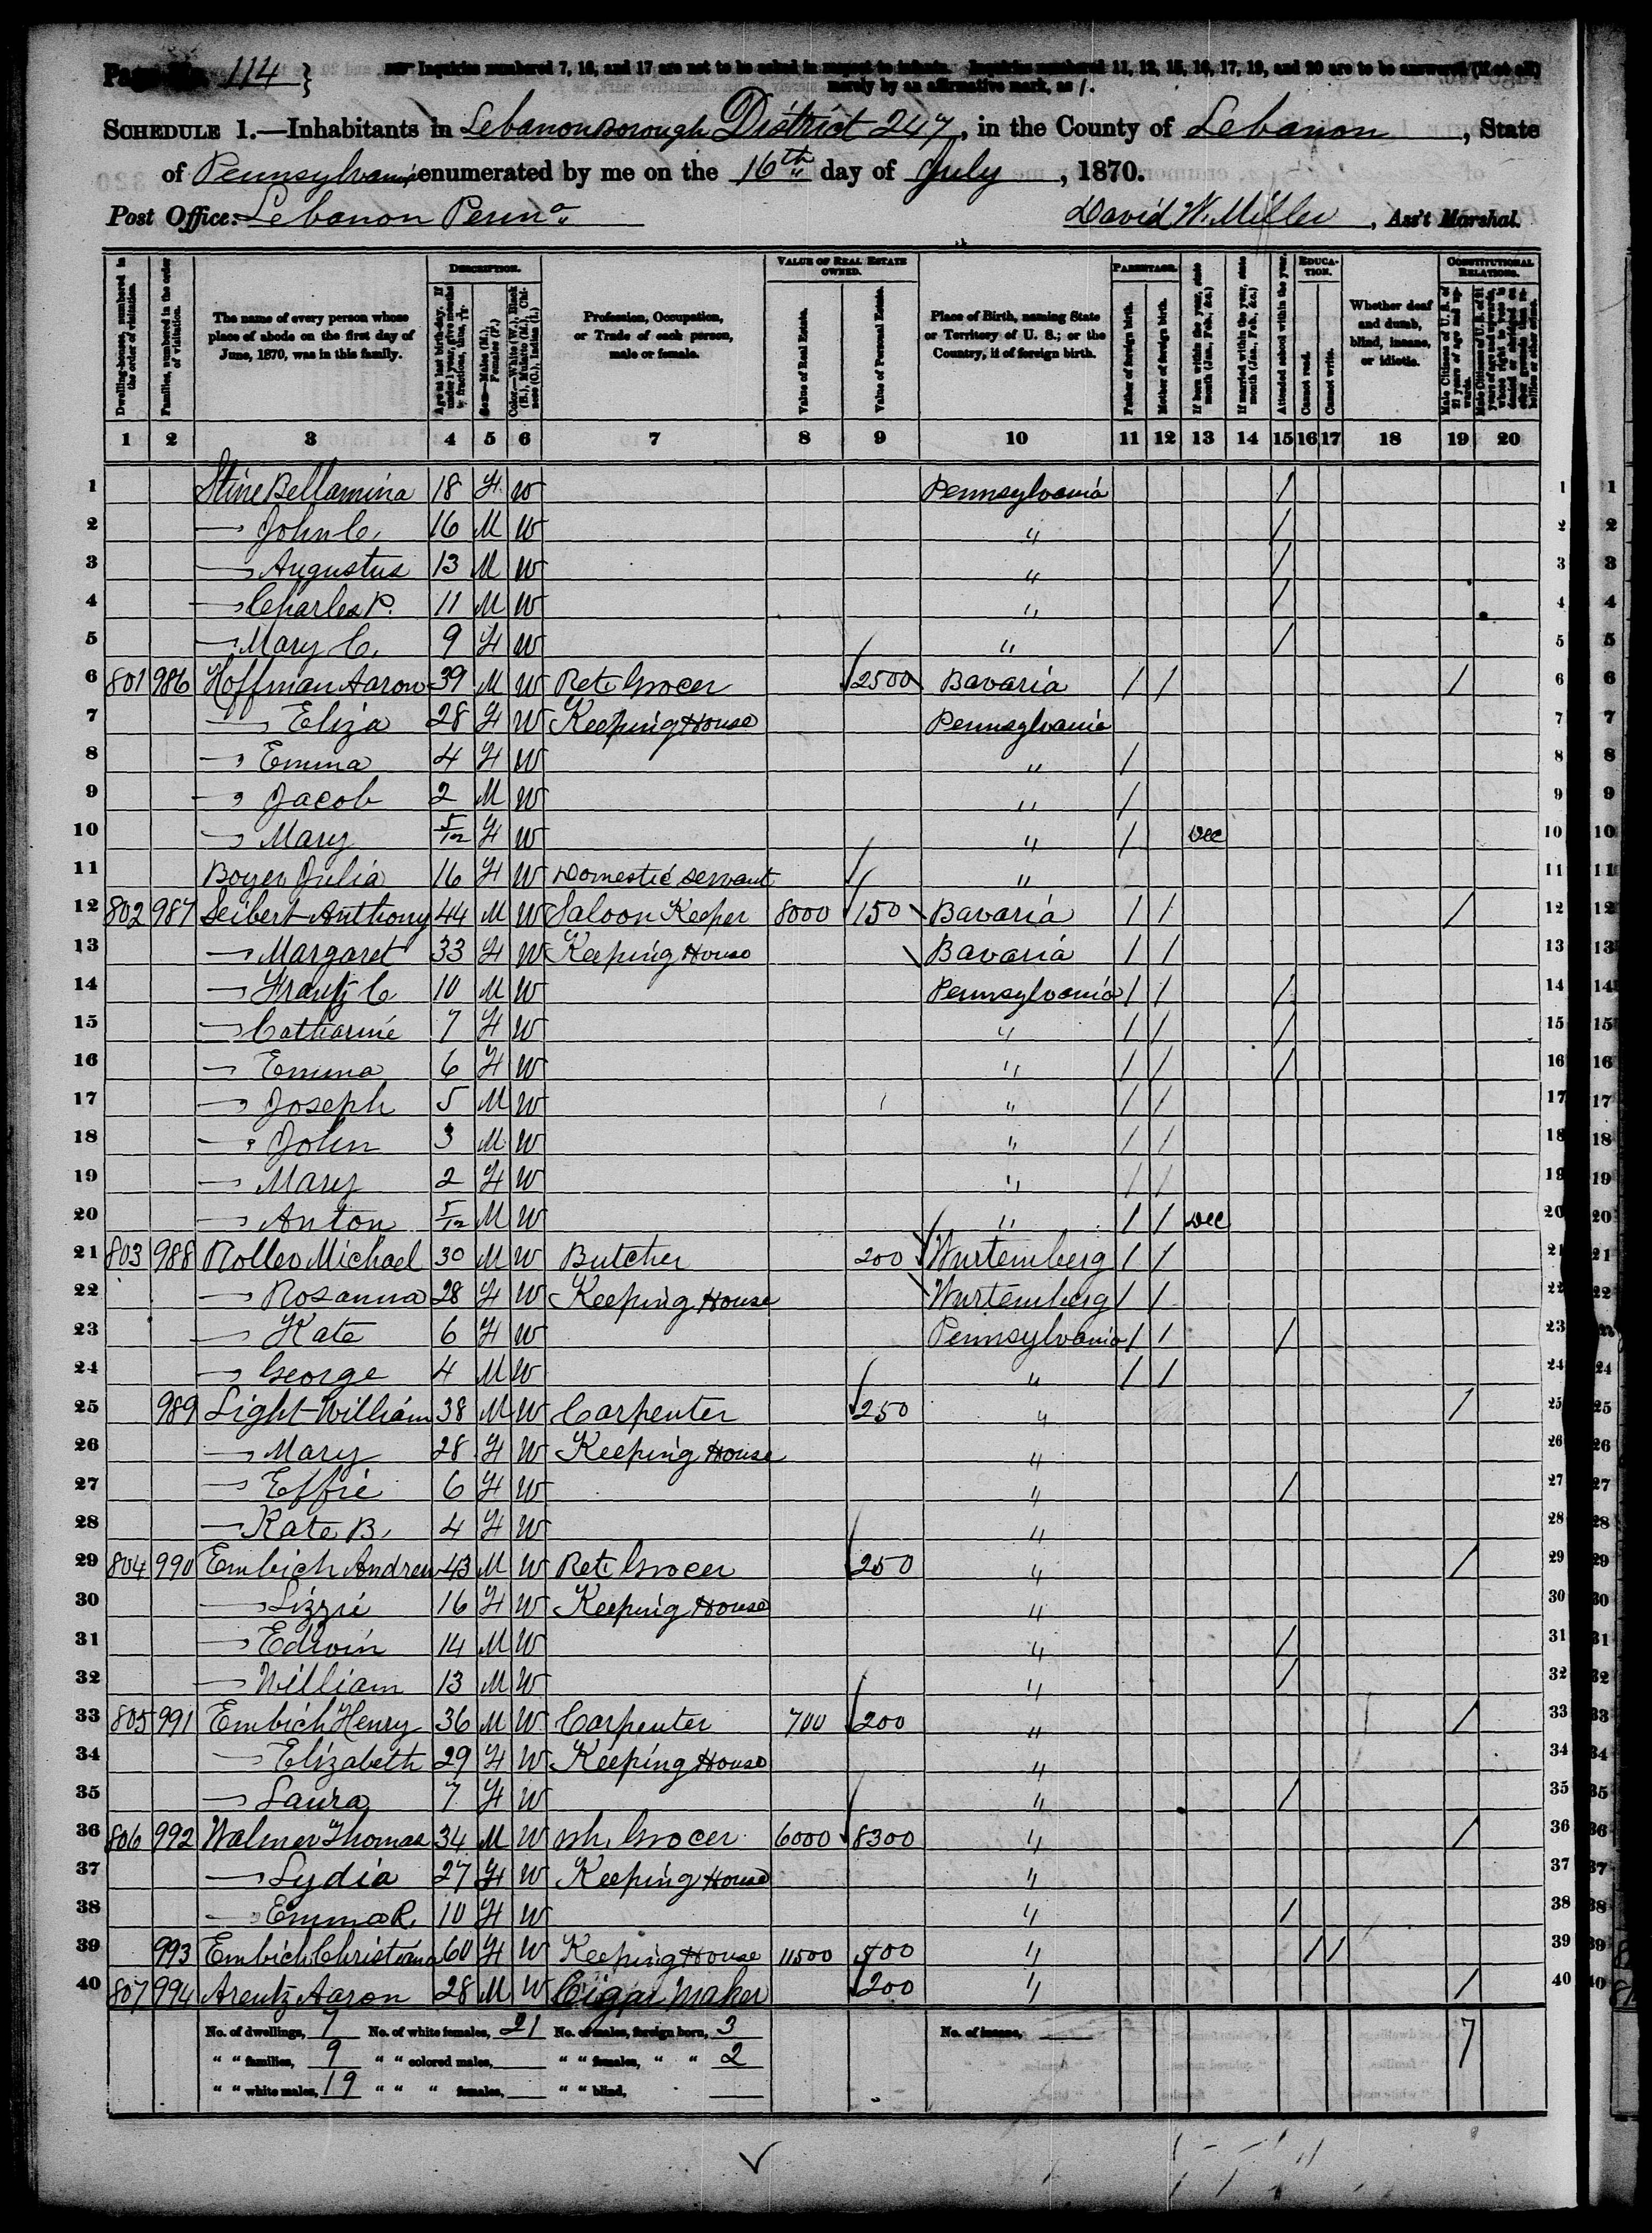 Page No. 114 }
Inquiries numbered 7, 16, and 17 are not to be asked in respect to infants. Inquiries numbered 11, 12, 15, 16, 17, 19, and 20 are to be answered (if at all)
merely by an affirmative mark, as /.
SCHEDULE 1.—Inhabitants in Lebanon Borough District 247, in the County of Lebanon, State
of Pennsylvania enumerated by me on the 16th day of July, 1870.
Post Office: Lebanon Penna
David W. Miller, Ass't Marshal.
DESCRIPTION. VALUE OF REAL ESTATE OWNED. PARENTAGE. EDUCATION. CONSTITUTIONAL RELATIONS.
Dwelling-houses, numbered in the order of visitation.
Families, numbered in the order of visitation.
The name of every person whose place of abode on the first day of June, 1870, was in this family.
Age at last birth-day. If under 1 year, give months in fractions, thus, 3/12.
Sex.—Males (M.), Females (F.)
Color.—White (W.), Black (B.), Mulatto (M.), Chinese (C.), Indian (I.)
Profession, Occupation, or Trade of each person, male or female.
Value of Real Estate.
Value of Personal Estate.
Place of Birth, naming State or Territory of U. S.; or the Country, if of foreign birth.
Father of foreign birth.
Mother of foreign birth.
If born within the year, state month (Jan., Feb., &c.)
If married within the year, state month (Jan., Feb., &c.)
Attended school within the year.
Cannot read.
Cannot write.
Whether deaf and dumb, blind, insane, or idiotic.
Male Citizens of U. S. of 21 years of age and upwards.
Male Citizens of U. S. of 21 years of age and upwards, whose right to vote is denied or abridged on other grounds than rebellion or other crime.
1 2 3 4 5 6 7 8 9 10 11 12 13 14 15 16 17 18 19 20
1 Stine Bellamina 18 F W Pennsylvania / 1
2 — John C. 16 M W " / 2
3 — Augustus 13 M W " / 3
4 — Charles P. 11 M W " / 4
5 — Mary C. 9 F W " / 5
6 801 986 Hoffman Aaron 39 M W Ret. Grocer 2500 Bavaria / / / 6
7 — Eliza 28 F W Keeping House Pennsylvania 7
8 — Emma 4 F W " / 8
9 — Jacob 2 M W " / 9
10 — Mary 5/12 F W " / Dec 10
11 Boyer Julia 16 F W Domestic Servant " 11
12 802 987 Seibert Anthony 44 M W Saloon Keeper 8000 150 Bavaria / / / 12
13 — Margaret 33 F W Keeping House Bavaria / / 13
14 — Frantz C 10 M W Pennsylvania / / / 14
15 — Catharine 7 F W " / / / 15
16 — Emma 6 F W " / / / 16
17 — Joseph 5 M W " / / 17
18 — John 3 M W " / / 18
19 — Mary 2 F W " / / 19
20 — Anton 5/12 M W " / / Dec 20
21 803 988 Roller Michael 30 M W Butcher 200 Wurtemberg / / 21
22 — Rosanna 28 F W Keeping House Wurtemberg / / 22
23 — Kate 6 F W Pennsylvania / / / 23
24 — George 4 M W " / / 24
25 989 Light William 38 M W Carpenter 250 " / 25
26 — Mary 28 F W Keeping House " 26
27 — Effie 6 F W " / 27
28 — Kate B. 4 F W " 28
29 804 990 Embich Andrew 43 M W Ret. Grocer 250 " / 29
30 — Lizzie 16 F W Keeping House " 30
31 — Edwin 14 M W " / 31
32 — William 13 M W " / 32
33 805 991 Embich Henry 36 M W Carpenter 700 200 " / 33
34 — Elizabeth 29 F W Keeping House " 34
35 — Laura 7 F W " / 35
36 806 992 Walmer Thomas 34 M W Wh. Grocer 6000 8300 " / 36
37 — Lydia 27 F W Keeping House " 37
38 — Emma R. 10 F W " / 38
39 993 Embich Christiana 60 F W Keeping House 11500 500 " / / 39
40 807 994 Arentz Aaron 28 M W Cigar Maker 200 " / 40
No. of dwellings, 7 No. of white females, 21 No. of males, foreign born, 3 No. of insane, 7
" " families, 9 " " colored males, " " females, " " 2
" " white males, 19 " " " females, " " blind,